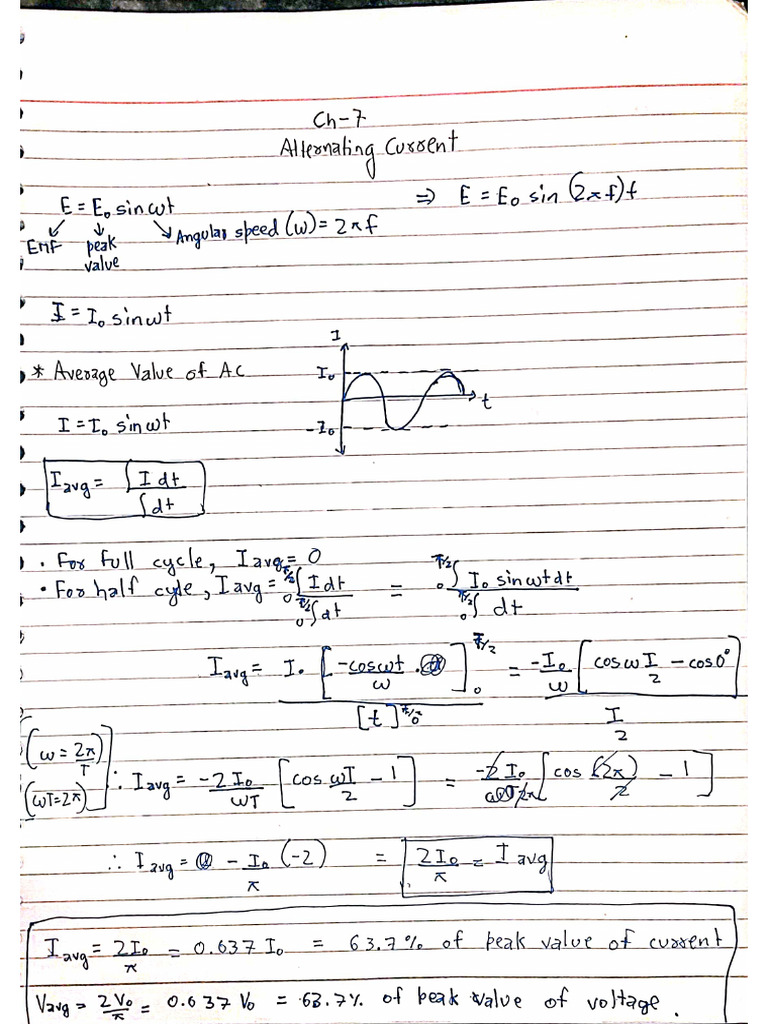 Ch-7
Alternating Current
E = E₀ sinωt ⇒ E = E₀ sin (2πf)t
EMF peak value Angular speed (ω) = 2πf
I = I₀ sinωt
* Average Value of AC
I
I₀
-I₀
t
I = I₀ sinωt
I avg = ∫I dt / ∫dt
• For full cycle, I avg = 0
• For half cycle, I avg = ₀∫^(T/2) I dt / ₀∫^(T/2) dt = ₀∫^(T/2) I₀ sinωt dt / ₀∫^(T/2) dt
I avg = I₀ [-cosωt / ω]₀^(T/2) / [t]₀^(T/2) = -I₀/ω [cosω T/2 - cos0°] / T/2
(ω = 2π/T)
(ωT = 2π)
∴ I avg = -2I₀/ωT [cos ωT/2 - 1] = -2I₀/2π [cos (2π)/2 - 1]
∴ I avg = -I₀/π (-2) = 2I₀/π = I avg
I avg = 2I₀/π = 0.637 I₀ = 63.7% of peak value of current
Vavg = 2V₀/π = 0.637 V₀ = 63.7% of peak value of voltage.